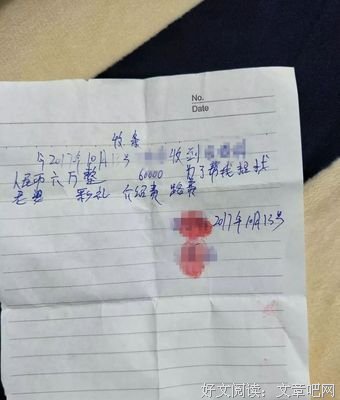 No.
Date
收条
今2017年10月13号 收到
人民币六万整 60000 为了帮我超找
老婆 彩礼 介绍费 路费
2017年10月13号
好文阅读：文章吧网